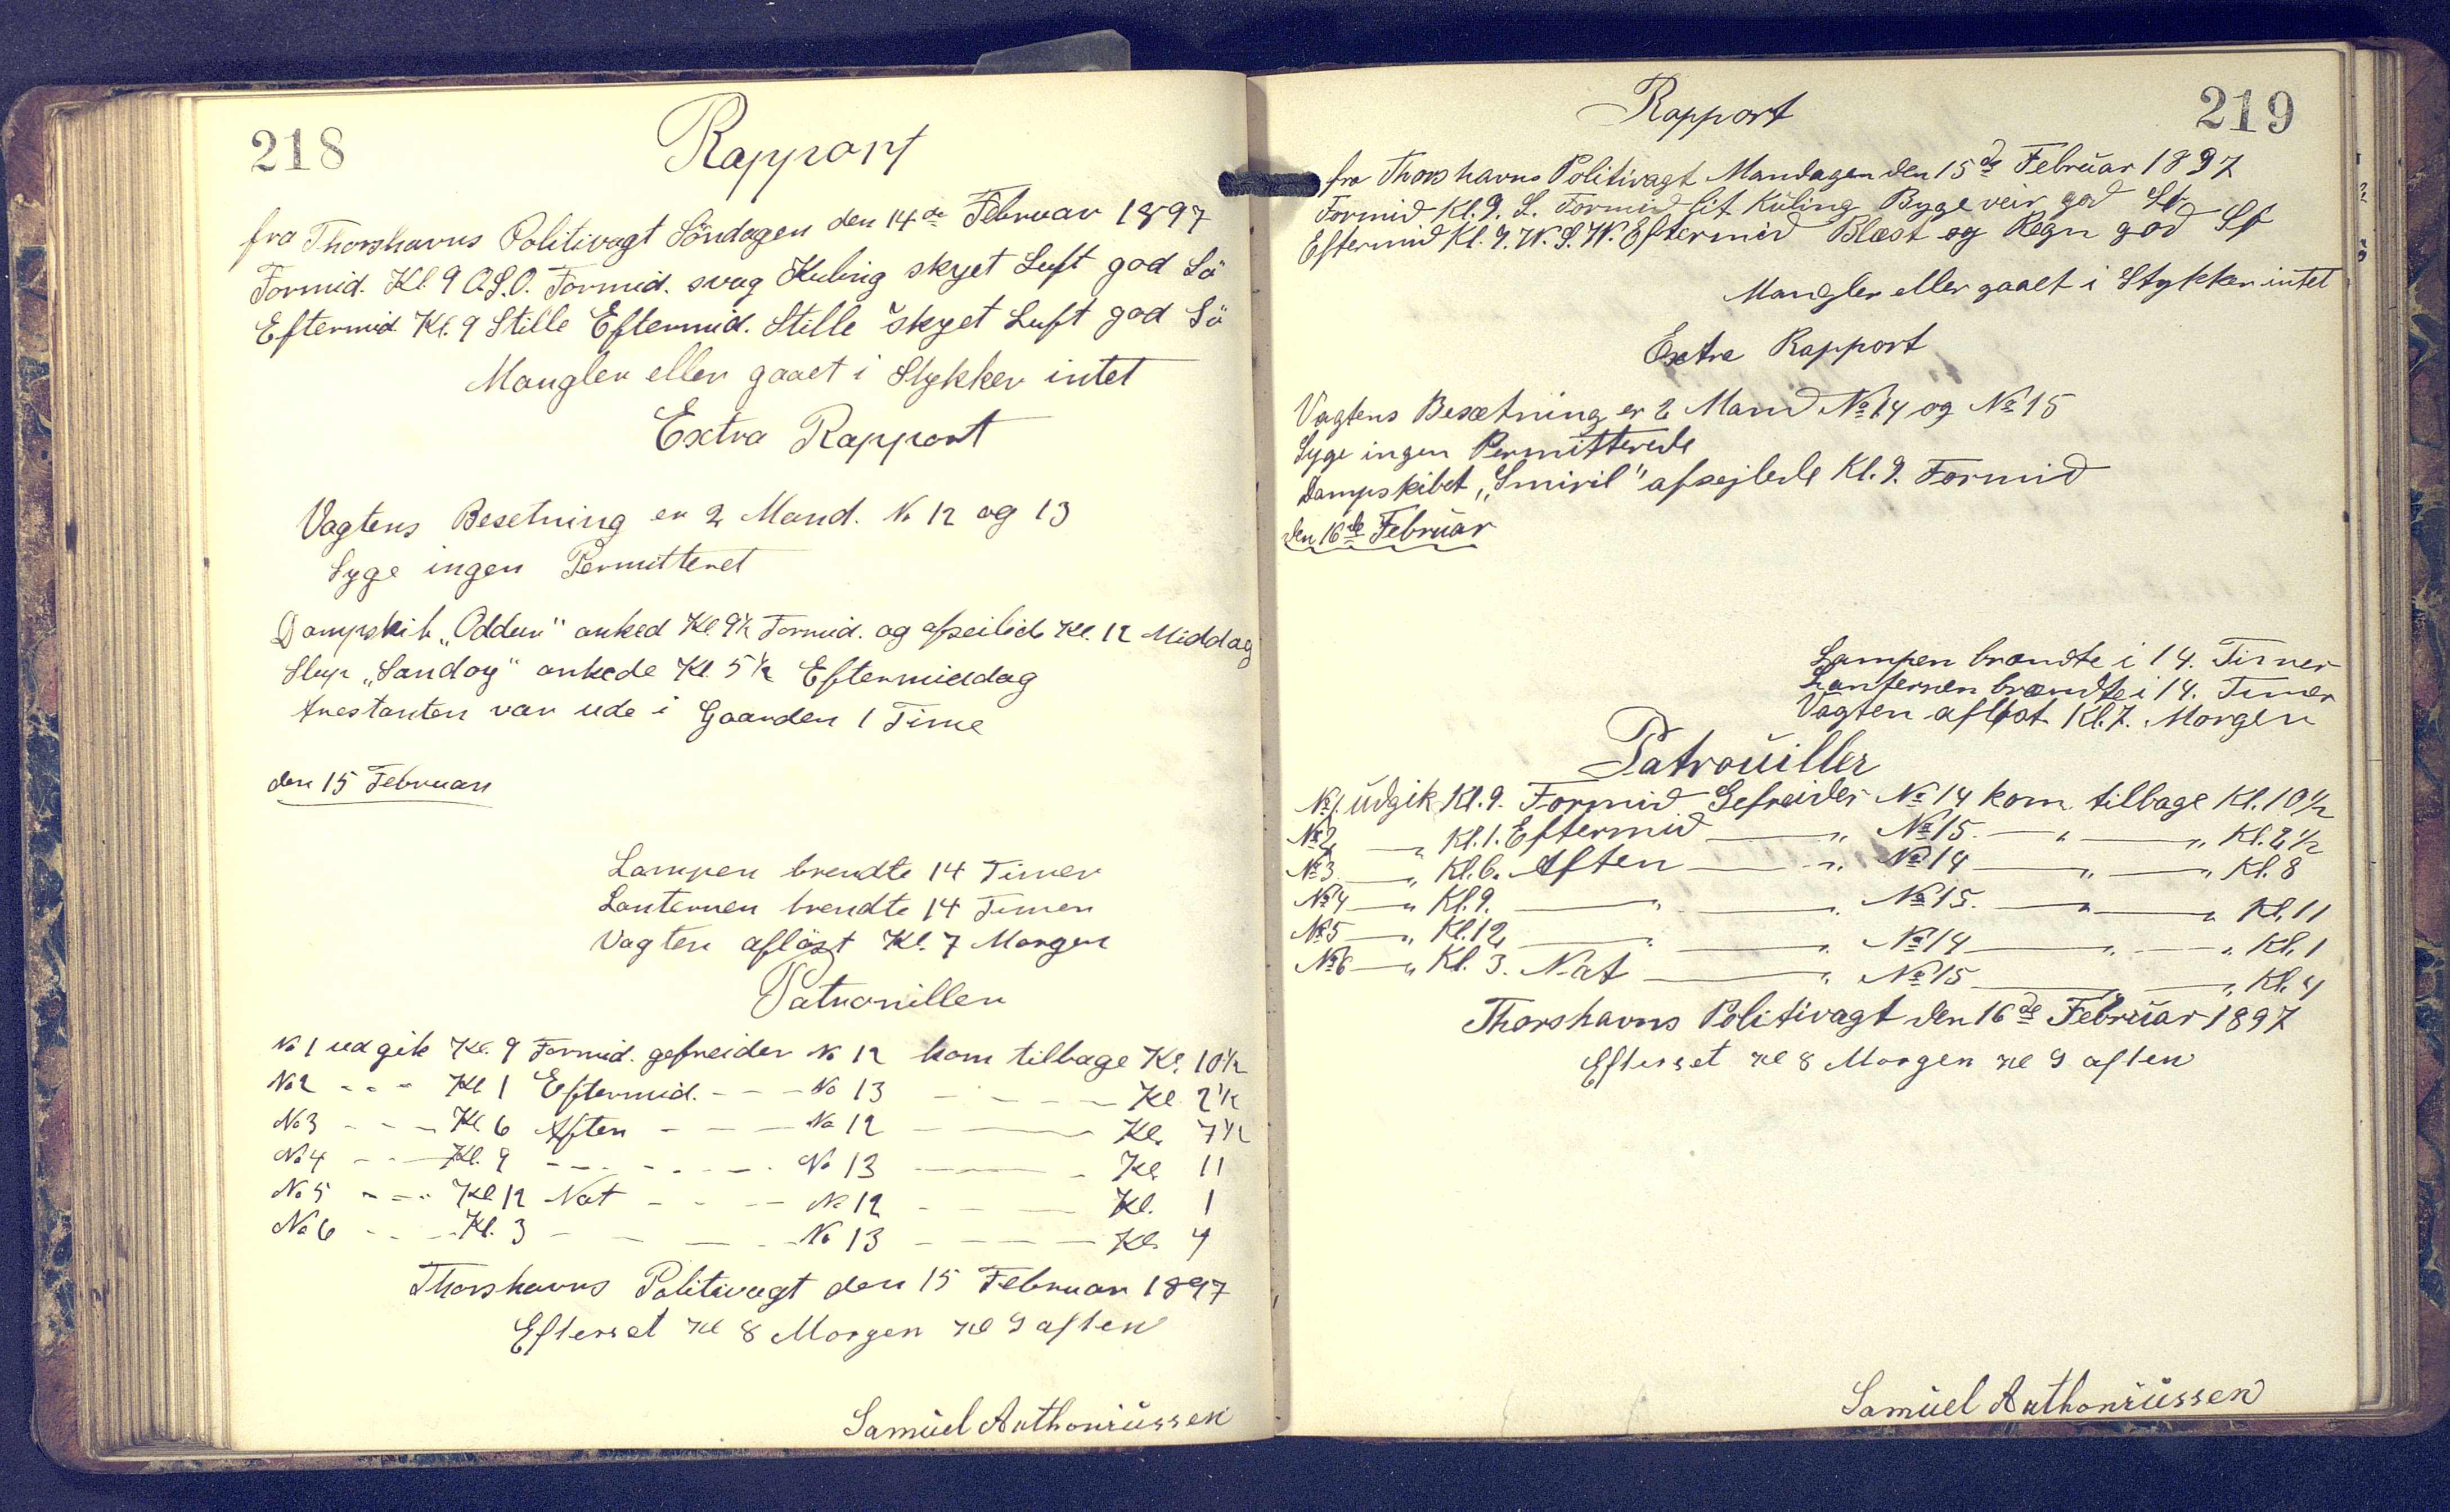 218
Rapport
fra Thorshavns Politivagt Söndagen den 14de Februar 1897
Formid. Kl. 9 O.S.O. Formid. svag Kuling skyet Luft god Sö
Eftermid Kl. 9 Stille Eftermid. Stille skyet Luft god Sö
Mangler eller gaaet i Stykker intet
Extra Rapport
Vagtens Besetning er 2 Mand. No 12 og 13
Syge ingen Permitteret
Dampskib „Oddur" anked Kl. 9½ Formid. og afseilede Kl. 12 Middag
Slup „Sandoy" ankede Kl. 5½ Eftermiddag
Arestanten var ude i Gaarden 1 Time
den 15 Februar
Lampen brendte 14 Timer
Lanternen brendte 14 Timer
Vagten aflöst Kl. 7 Morgen
Patrouiller
No 1 udgik Kl. 9 Formid. gefreider No 12 kom tilbage Kl. 10½
No 2 - - - Kl 1 Eftermid. - - - No 13 - - - - Kl 2½
No 3 - - - Kl 6 Aften - - - No 12 - - - Kl. 7½
No 4 - - - Kl. 9 - - - - - - No 13 - - - Kl 11
No 5 - - - Kl 12 Nat - - - No 12 - - - Kl. 1
No 6 - - - Kl. 3 - - - - No 13 - - - - Kl. 4
Thorshavns Politivagt den 15 Februar 1897
Efterset Kl 8 Morgen Kl 9 aften
Samüel Anthoniüssen
219
Rapport
fra Thorshavns Politivagt Mandagen den 15de Februar 1897
Formid Kl. 9. S. Formid lit Küling Byge veir god Sø
Eftermid Kl. 9. W.S.W. Eftermid Blæst og Regn god Sø
Mangler eller gaaet i Stykker intet
Extra Rapport
Vagtens Besætning er 2 Mand No 14 og No 15
Syge ingen Permitterede
Dampskibet „Smiril" afsejlede Kl. 9. Formid
den 16de Februar
Lampen brændte i 14. Timer
Lanternen brændte i 14. Timer
Vagten afløst Kl. 7. Morgen
Patroüiller
No 1. üdgik Kl. 9. Formid Gefreider No 14 kom tilbage Kl. 10½
No 2 — „ Kl. 1. Eftermid — „ No 15. — „ — „ Kl. 2½
No 3 — „ Kl. 6. Aften — „ No 14 — „ — „ Kl. 8
No 4 — „ Kl. 9. — „ — „ No 15. — „ — „ Kl. 11
No 5 — „ Kl. 12 — „ — „ No 14 — „ — „ Kl. 1
No 6 — „ Kl. 3. Nat — „ No 15 — „ — „ Kl. 4
Thorshavns Politivagt den 16de Februar 1897
Efterset Kl 8 Morgen Kl 9 aften
Samüel Anthoniüssen